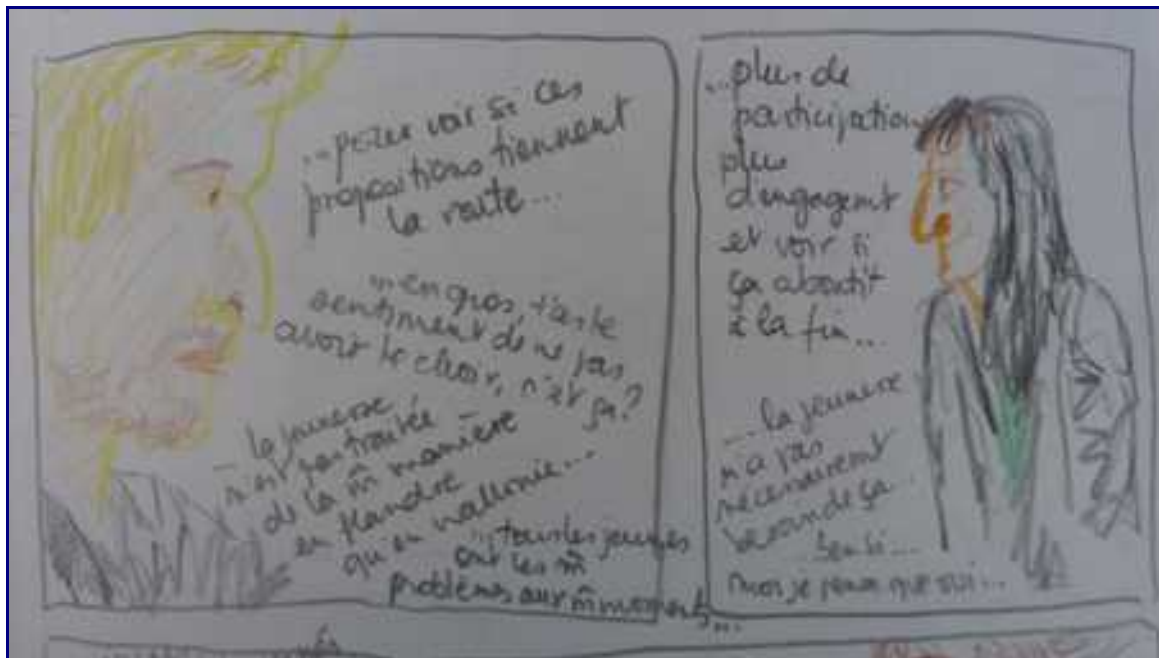 ...pour voir si ces
propositions tiennent
la route...
...en gros, t'as le
sentiment de ne pas
avoir le choix, n'est ça?
...la jeunesse
n'est pas traitée
de la m̄ manière
en flandre
qu'en wallonie...
...tous les jeunes
ont les m̄
problèmes aux m̄ moments...
...plus de
participation
plus
d'engagemt
et voir si
ça aboutit
à la fin...
...la jeunesse
n'a pas
besoin de ça...
ben si...
moi je pense que oui...